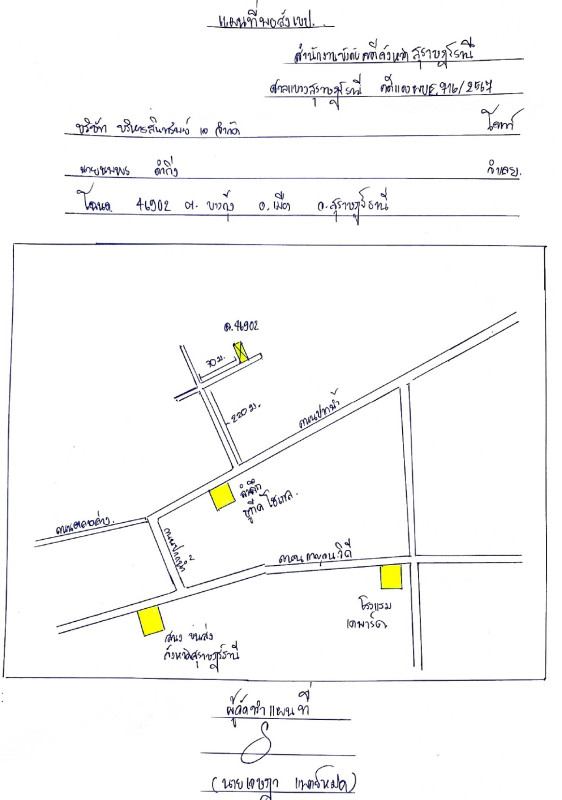 แผนที่พอสังเขป.
สำนักงานบังคับคดีจังหวัดสุราษฎร์ธานี
ศาลแขวงสุราษฎร์ธานี คดีแดง ผบE.716/2567
บริษัท บริหารสินทรัพย์ เจ จำกัด โจทก์
นายชุมพร ดำกิ่ง จำเลย.
โฉนด 46902 ต. บางกุ้ง อ.เมือง จ.สุราษฎร์ธานี
ฉ.46902
30 ม.
220 ม.
ถนนปากน้ำ
ลำดึก
โฮเทล
ถนนตลาดล่าง.
ถนนปากน้ำ 2
ถนน กาญจนวิถี
โรงแรม
เดพาร์ค
ขนส่ง
จังหวัดสุราษฎร์ธานี
ผู้จัดทำแผนที่
(นายเจษฎา เพชรหมด)